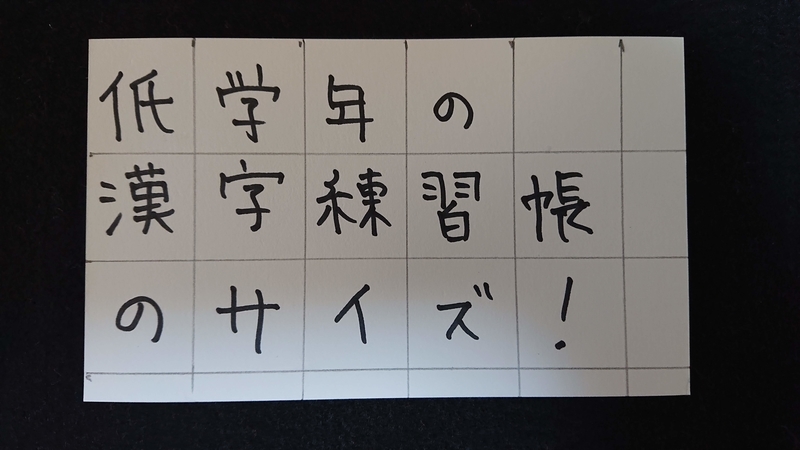 低学年の
漢字練習帳
のサイズ!